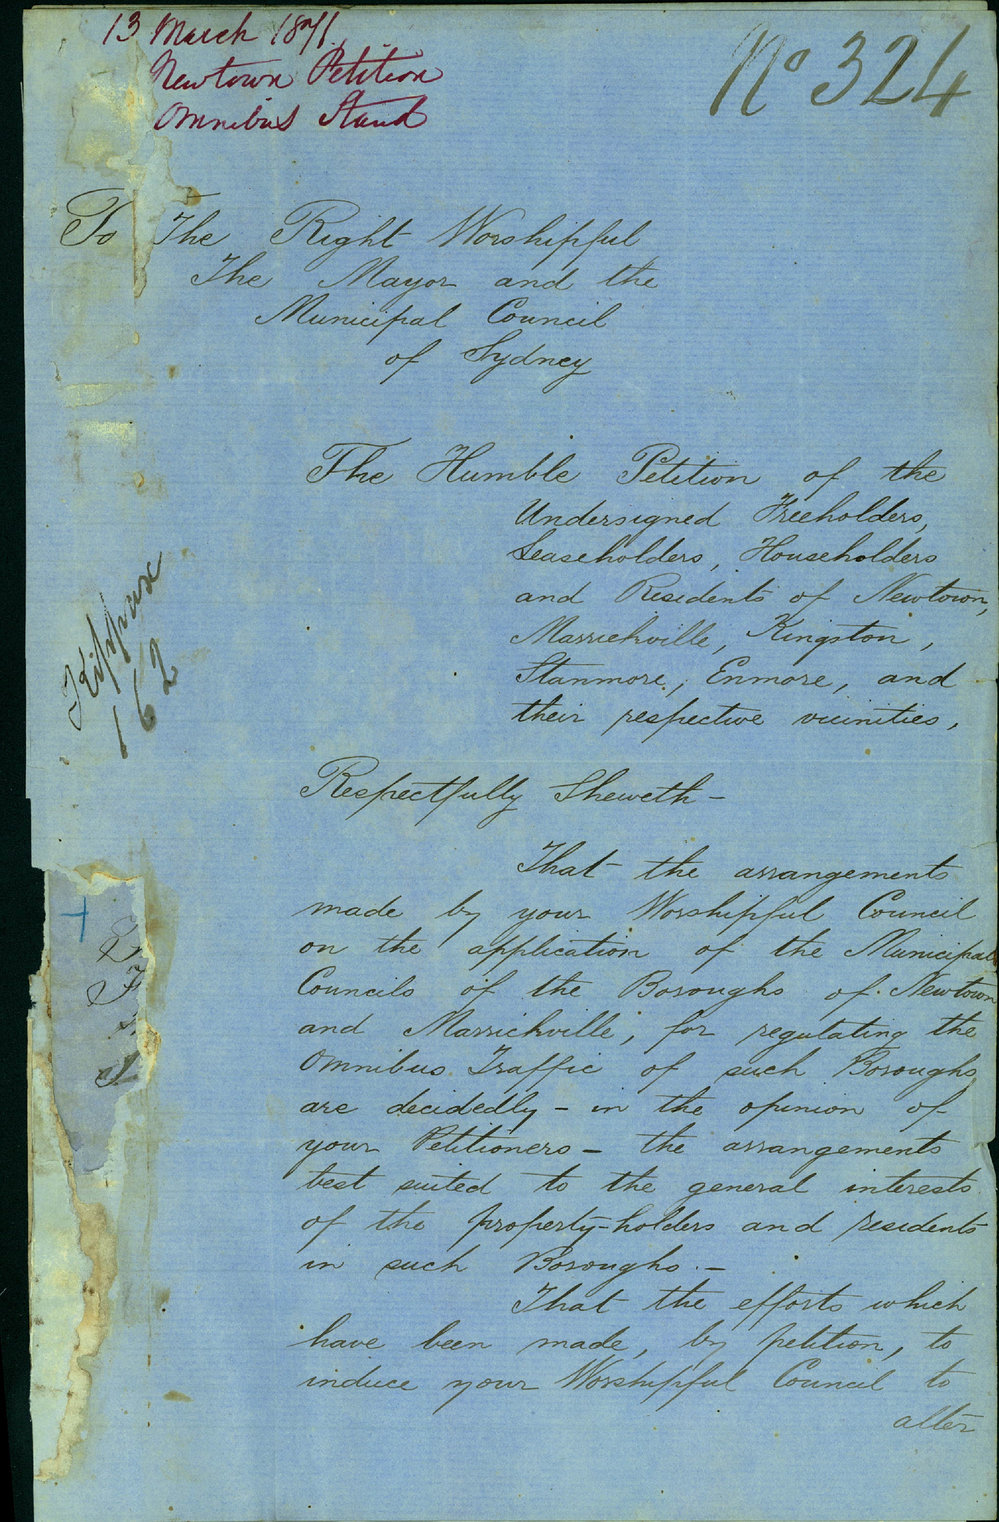 13 March 1871
Newtown Petition
Omnibus Stand
No 324
To The Right Worshipful
The Mayor and the
Municipal Council
of Sydney
The Humble Petition of the
Undersigned Freeholders,
Leaseholders, Householders
and Residents of Newtown,
Marrickville, Kingston,
Stanmore, Enmore, and
their respective vicinities,
Kippax
162
Respectfully Sheweth –
That the arrangements
made by your Worshipful Council
on the application of the Municipal
Councils of the Boroughs of Newtown
and Marrickville, for regulating the
Omnibus Traffic of such Boroughs
are decidedly – in the opinion of
your Petitioners – the arrangements
best suited to the general interests
of the property-holders and residents
in such Boroughs. –
That the efforts which
have been made, by petition, to
induce your Worshipful Council to
alter